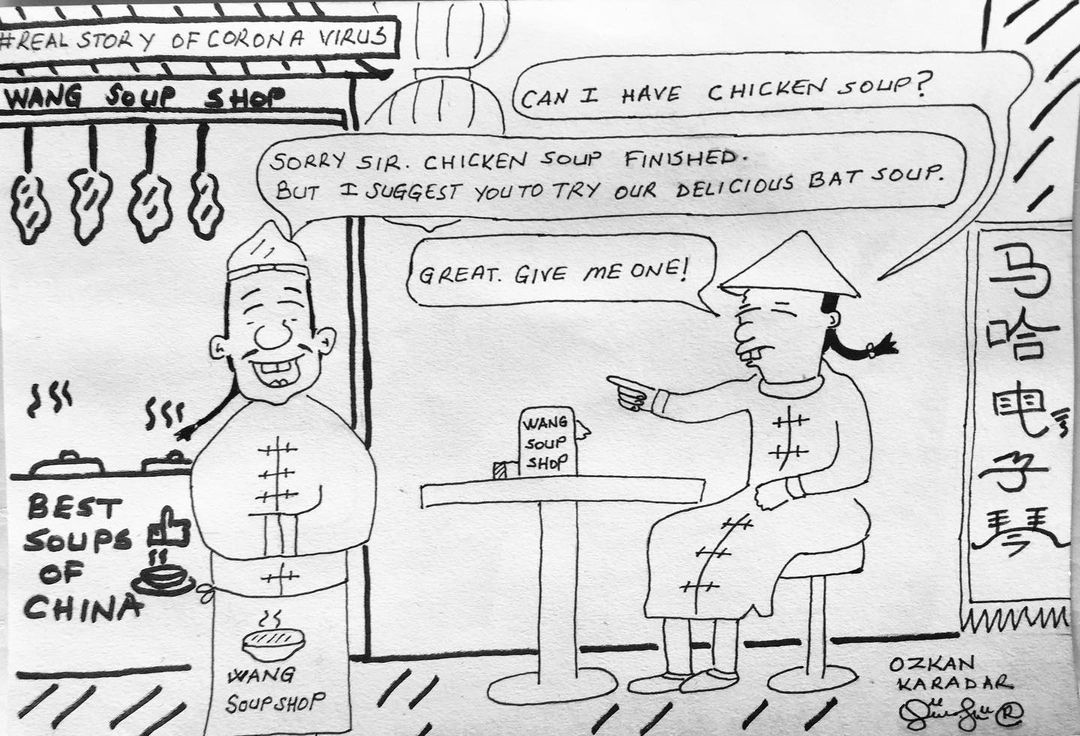 #REAL STORY OF CORONA VIRUS
WANG SOUP SHOP
CAN I HAVE CHICKEN SOUP?
SORRY SIR. CHICKEN SOUP FINISHED.
BUT I SUGGEST YOU TO TRY OUR DELICIOUS BAT SOUP.
GREAT. GIVE ME ONE!
WANG
SOUP
SHOP
BEST
SOUPS
OF
CHINA
WANG
SOUP SHOP
马
哈
电
子
琴
OZKAN
KARADAR
®